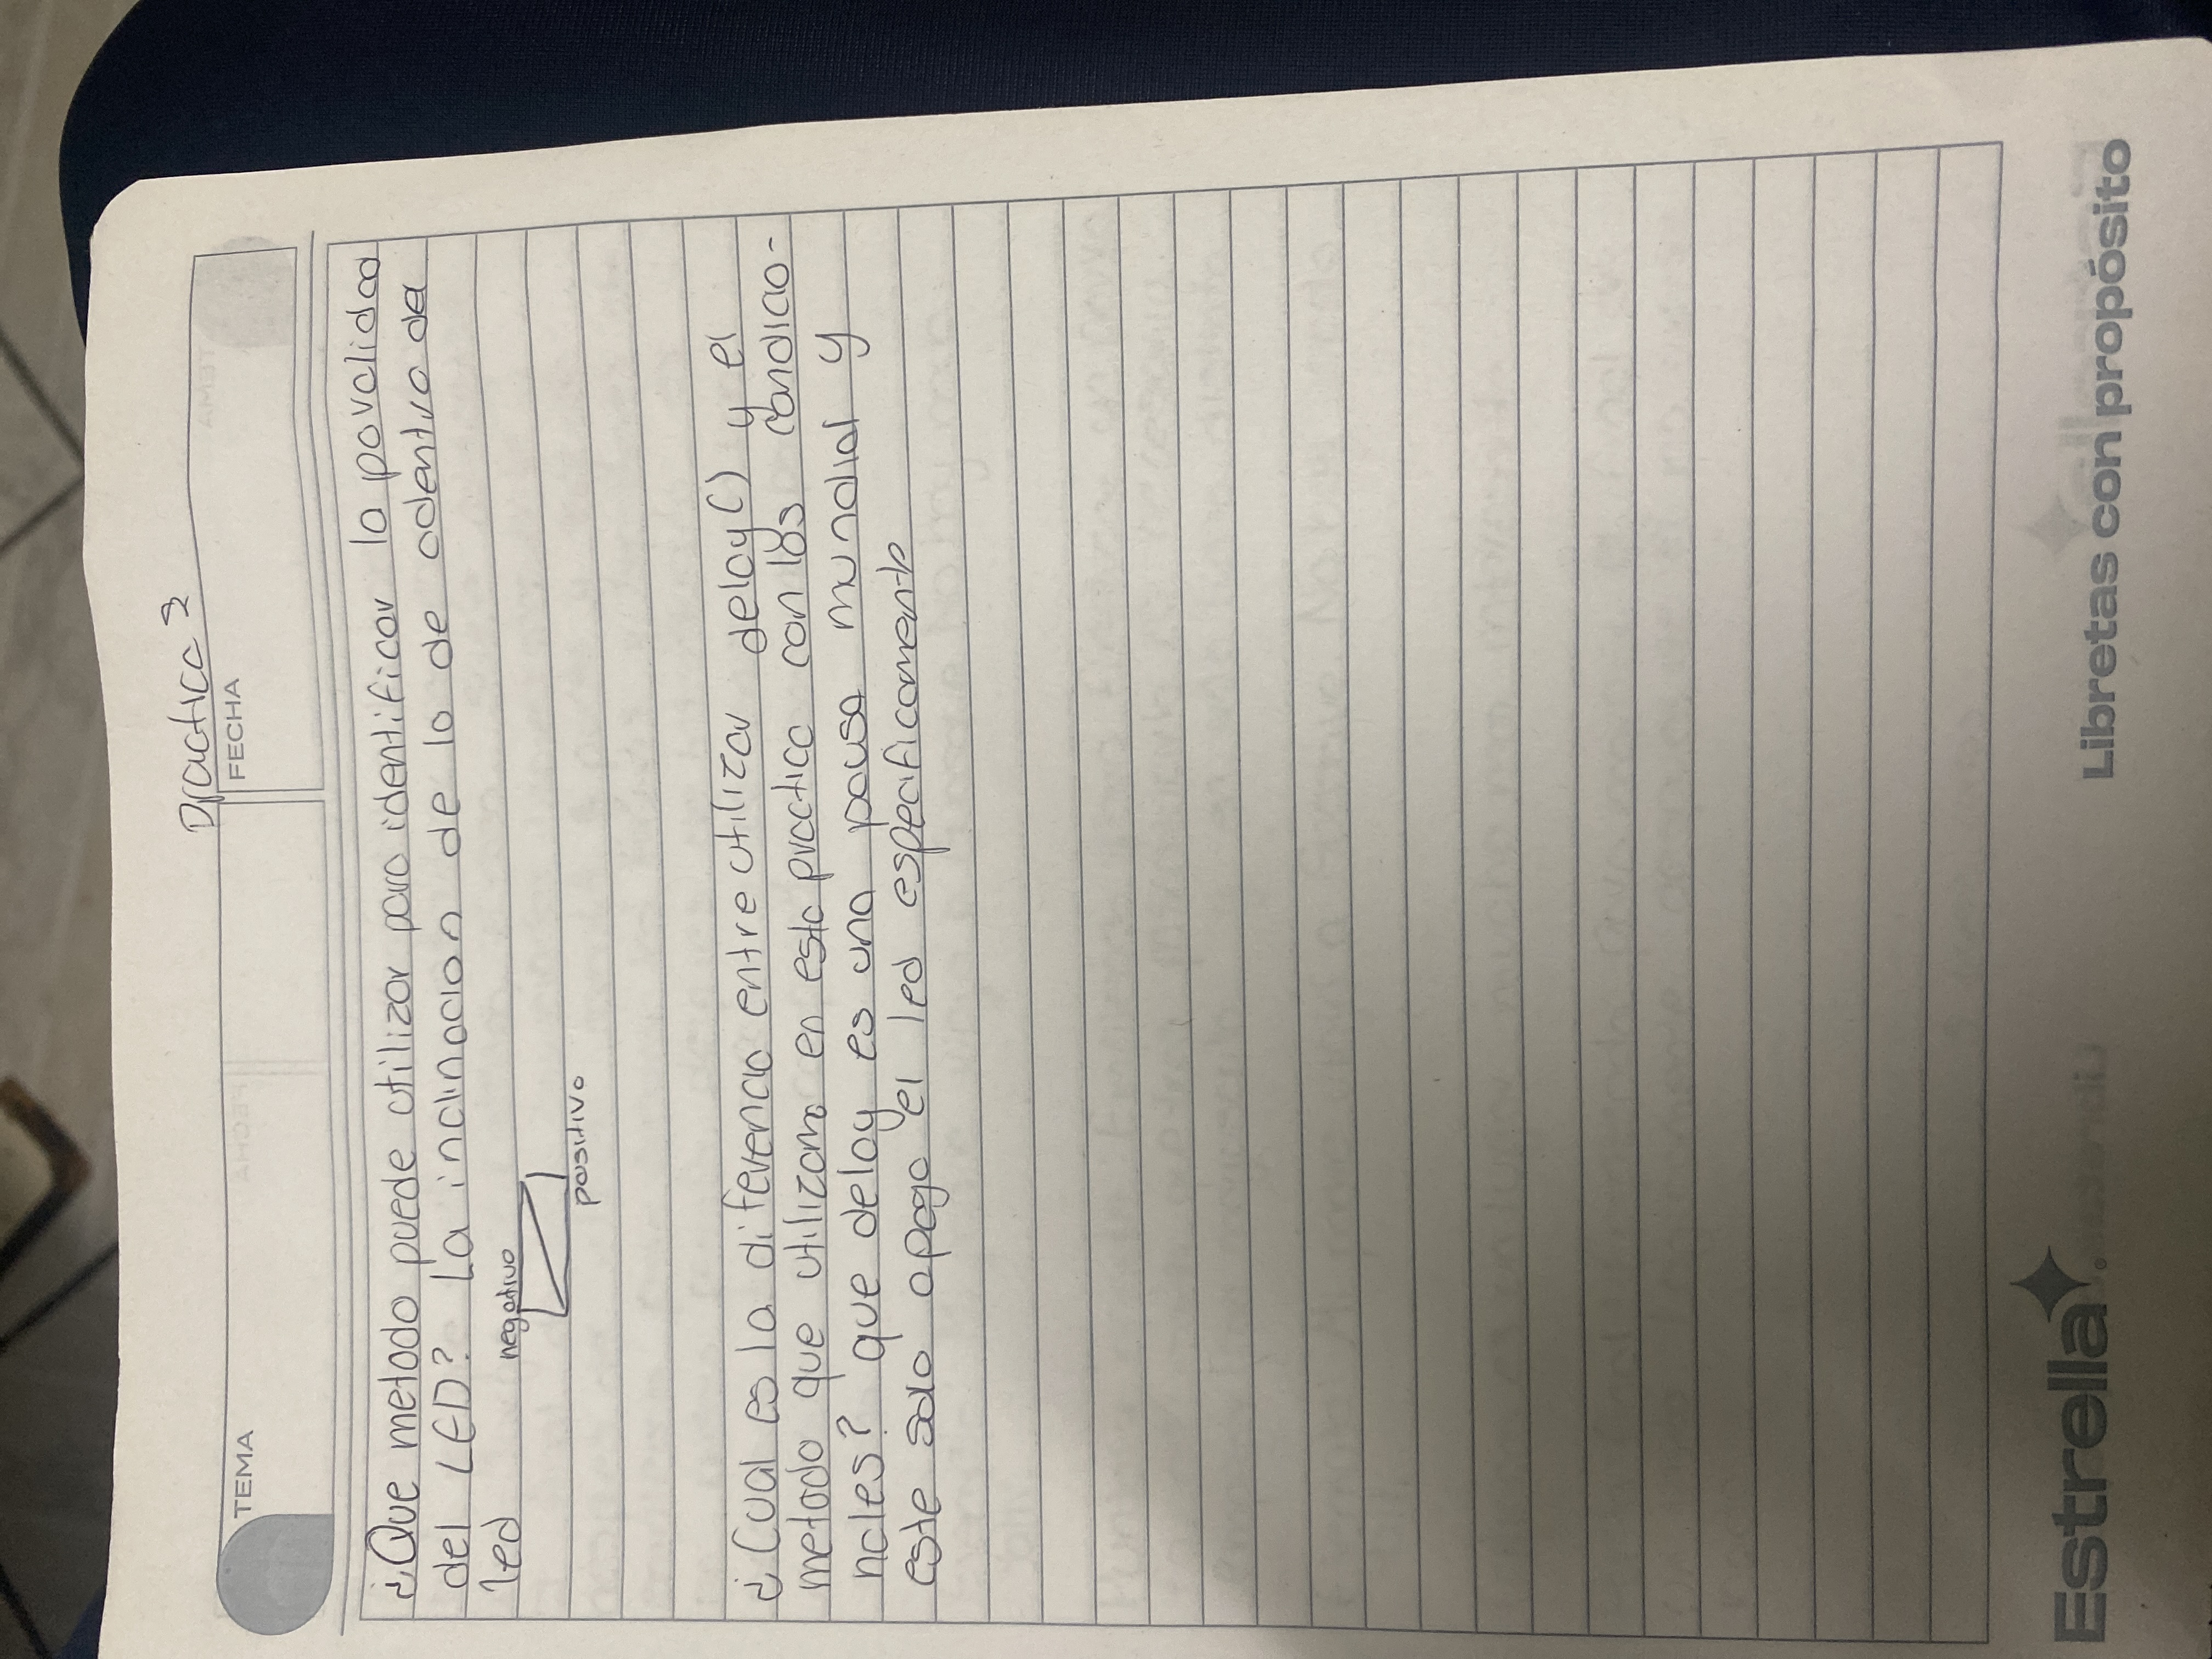 Practica 3
TEMA
FECHA
¿Que metodo puede utilizar para identificar la poralidad
del LED? La inclinacion de lo de adentro del
led
negativo
positivo
¿Cual es la diferencia entre utilizar delay() y el
metodo que utilizamo en esta practica con las condicio-
nales? que delay es una pausa mundial y
este solo apaga el led especificamente
Estrella
Libretas con propósito